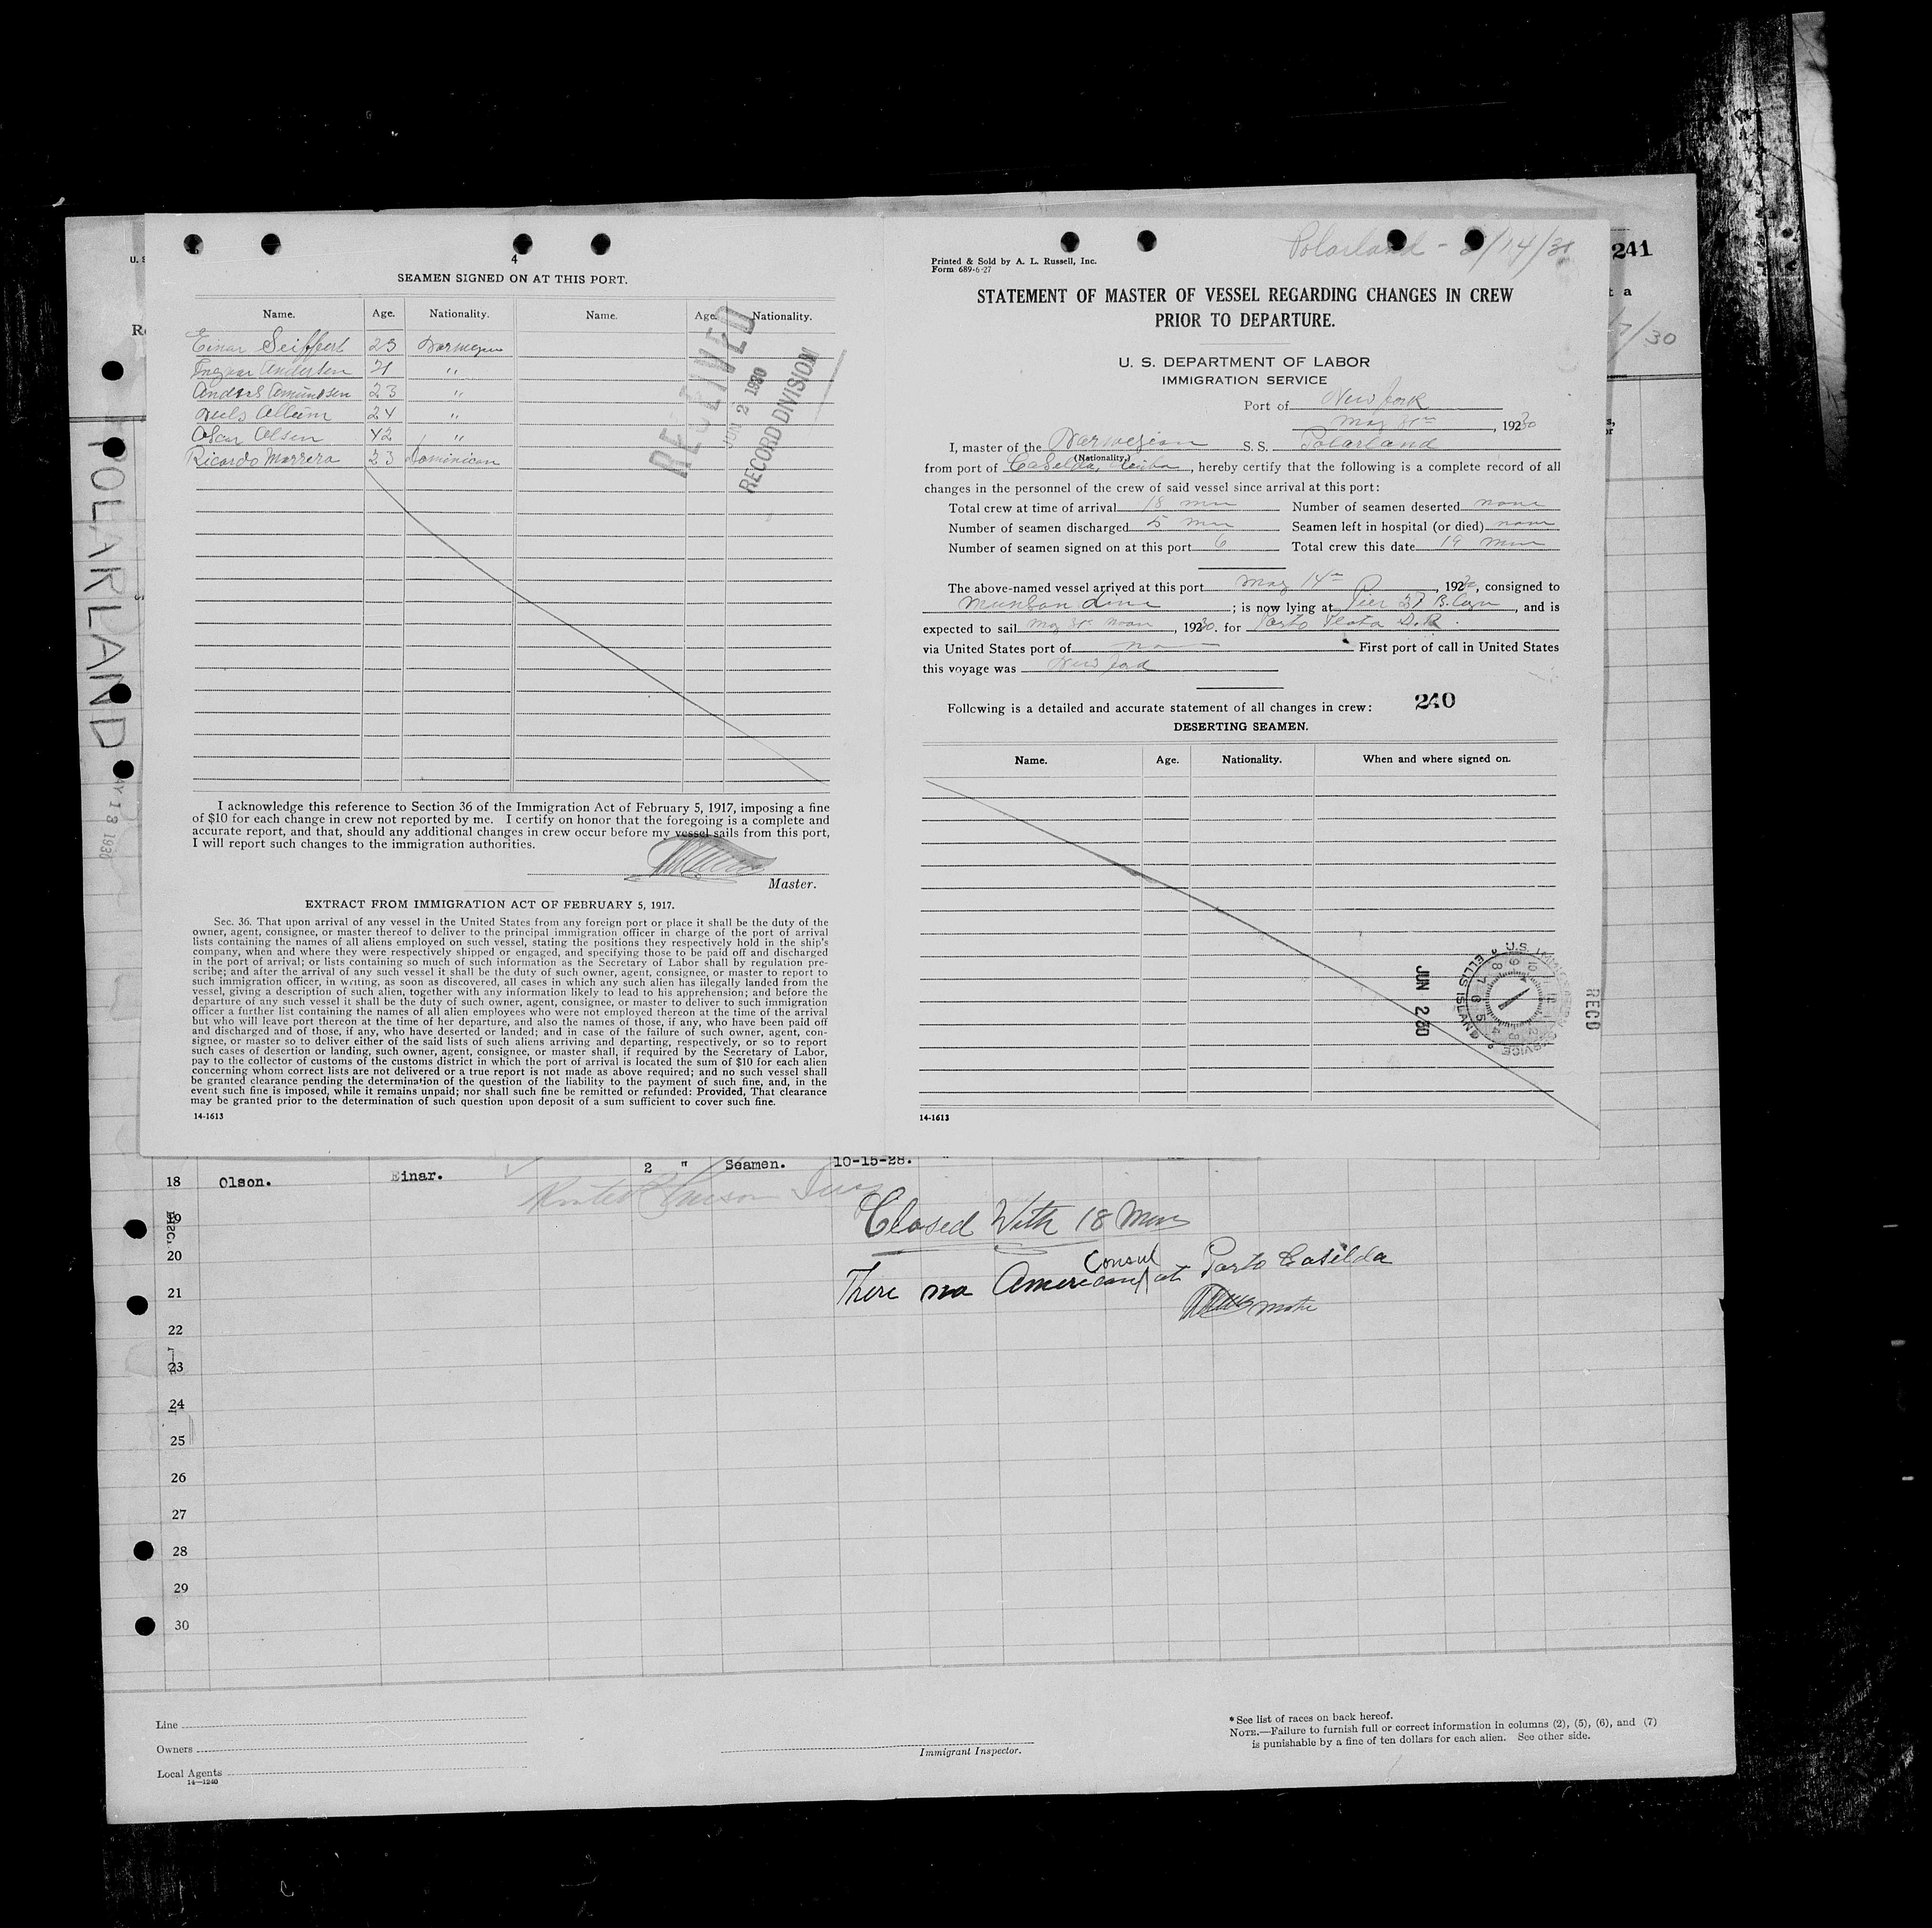 4
SEAMEN SIGNED ON AT THIS PORT.
Name. Age. Nationality. Name. Age. Nationality.
Einar Seiffert 23 Norwegian
Ingvar Andersen 21 "
Anders Amundsen 23 "
Niels 24 "
Oscar Olsen 42 "
Ricardo Marrero 23 Dominican
RECEIVED
JUN 2 1930
RECORD DIVISION
I acknowledge this reference to Section 36 of the Immigration Act of February 5, 1917, imposing a fine
of $10 for each change in crew not reported by me. I certify on honor that the foregoing is a complete and
accurate report, and that, should any additional changes in crew occur before my vessel sails from this port,
I will report such changes to the immigration authorities.
Master.
EXTRACT FROM IMMIGRATION ACT OF FEBRUARY 5, 1917.
Sec. 36. That upon arrival of any vessel in the United States from any foreign port or place it shall be the duty of the
owner, agent, consignee, or master thereof to deliver to the principal immigration officer in charge of the port of arrival
lists containing the names of all aliens employed on such vessel, stating the positions they respectively hold in the ship's
company, when and where they were respectively shipped or engaged, and specifying those to be paid off and discharged
in the port of arrival; or lists containing so much of such information as the Secretary of Labor shall by regulation pre-
scribe; and after the arrival of any such vessel it shall be the duty of such owner, agent, consignee, or master to report to
such immigration officer, in writing, as soon as discovered, all cases in which any such alien has illegally landed from the
vessel, giving a description of such alien, together with any information likely to lead to his apprehension; and before the
departure of any such vessel it shall be the duty of such owner, agent, consignee, or master to deliver to such immigration
officer a further list containing the names of all alien employees who were not employed thereon at the time of the arrival
but who will leave port thereon at the time of her departure, and also the names of those, if any, who have been paid off
and discharged and of those, if any, who have deserted or landed; and in case of the failure of such owner, agent, con-
signee, or master so to deliver either of the said lists of such aliens arriving and departing, respectively, or so to report
such cases of desertion or landing, such owner, agent, consignee, or master shall, if required by the Secretary of Labor,
pay to the collector of customs of the customs district in which the port of arrival is located the sum of $10 for each alien
concerning whom correct lists are not delivered or a true report is not made as above required; and no such vessel shall
be granted clearance pending the determination of the question of the liability to the payment of such fine, and, in the
event such fine is imposed, while it remains unpaid; nor shall such fine be remitted or refunded: Provided, That clearance
may be granted prior to the determination of such question upon deposit of a sum sufficient to cover such fine.
14-1613
Polarland - 5/14/30
Printed & Sold by A. L. Russell, Inc.
Form 689-6-27
STATEMENT OF MASTER OF VESSEL REGARDING CHANGES IN CREW
PRIOR TO DEPARTURE.
U. S. DEPARTMENT OF LABOR
IMMIGRATION SERVICE
Port of New York
May 31st, 1930
I, master of the Norwegian S. S. Polarland
(Nationality.)
from port of Casilda, Cuba, hereby certify that the following is a complete record of all
changes in the personnel of the crew of said vessel since arrival at this port:
Total crew at time of arrival 18 men Number of seamen deserted none
Number of seamen discharged 5 men Seamen left in hospital (or died) none
Number of seamen signed on at this port 6 Total crew this date 19 men
The above-named vessel arrived at this port May 14th, 1930, consigned to
Munson Line; is now lying at Pier 27 B.lyn, and is
expected to sail May 31st noon, 1930. for Porto Plata D.R.
via United States port of First port of call in United States
this voyage was New York
Following is a detailed and accurate statement of all changes in crew: 240
DESERTING SEAMEN.
Name. Age. Nationality. When and where signed on.
JUN 2 30
U.S. IMMIGRATION SERVICE ELLIS ISLAND
RECD
14-1613
241
t a
/30
POLARLAND
MAY 13 1930
18 Olson. Einar. 2 " Seamen. 10-15-28. "
19
20
21
22
23
24
25
26
27
28
29
30
Closed With 18 Men
There no American Consul at Porto Casilda
Line
Owners
Local Agents
14-1240
Immigrant Inspector.
* See list of races on back hereof.
NOTE.—Failure to furnish full or correct information in columns (2), (5), (6), and (7)
is punishable by a fine of ten dollars for each alien. See other side.